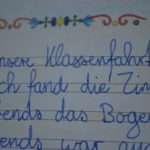 unsere Klassenfahrt
ich fand die Zim
bends das Bogen
bends war au